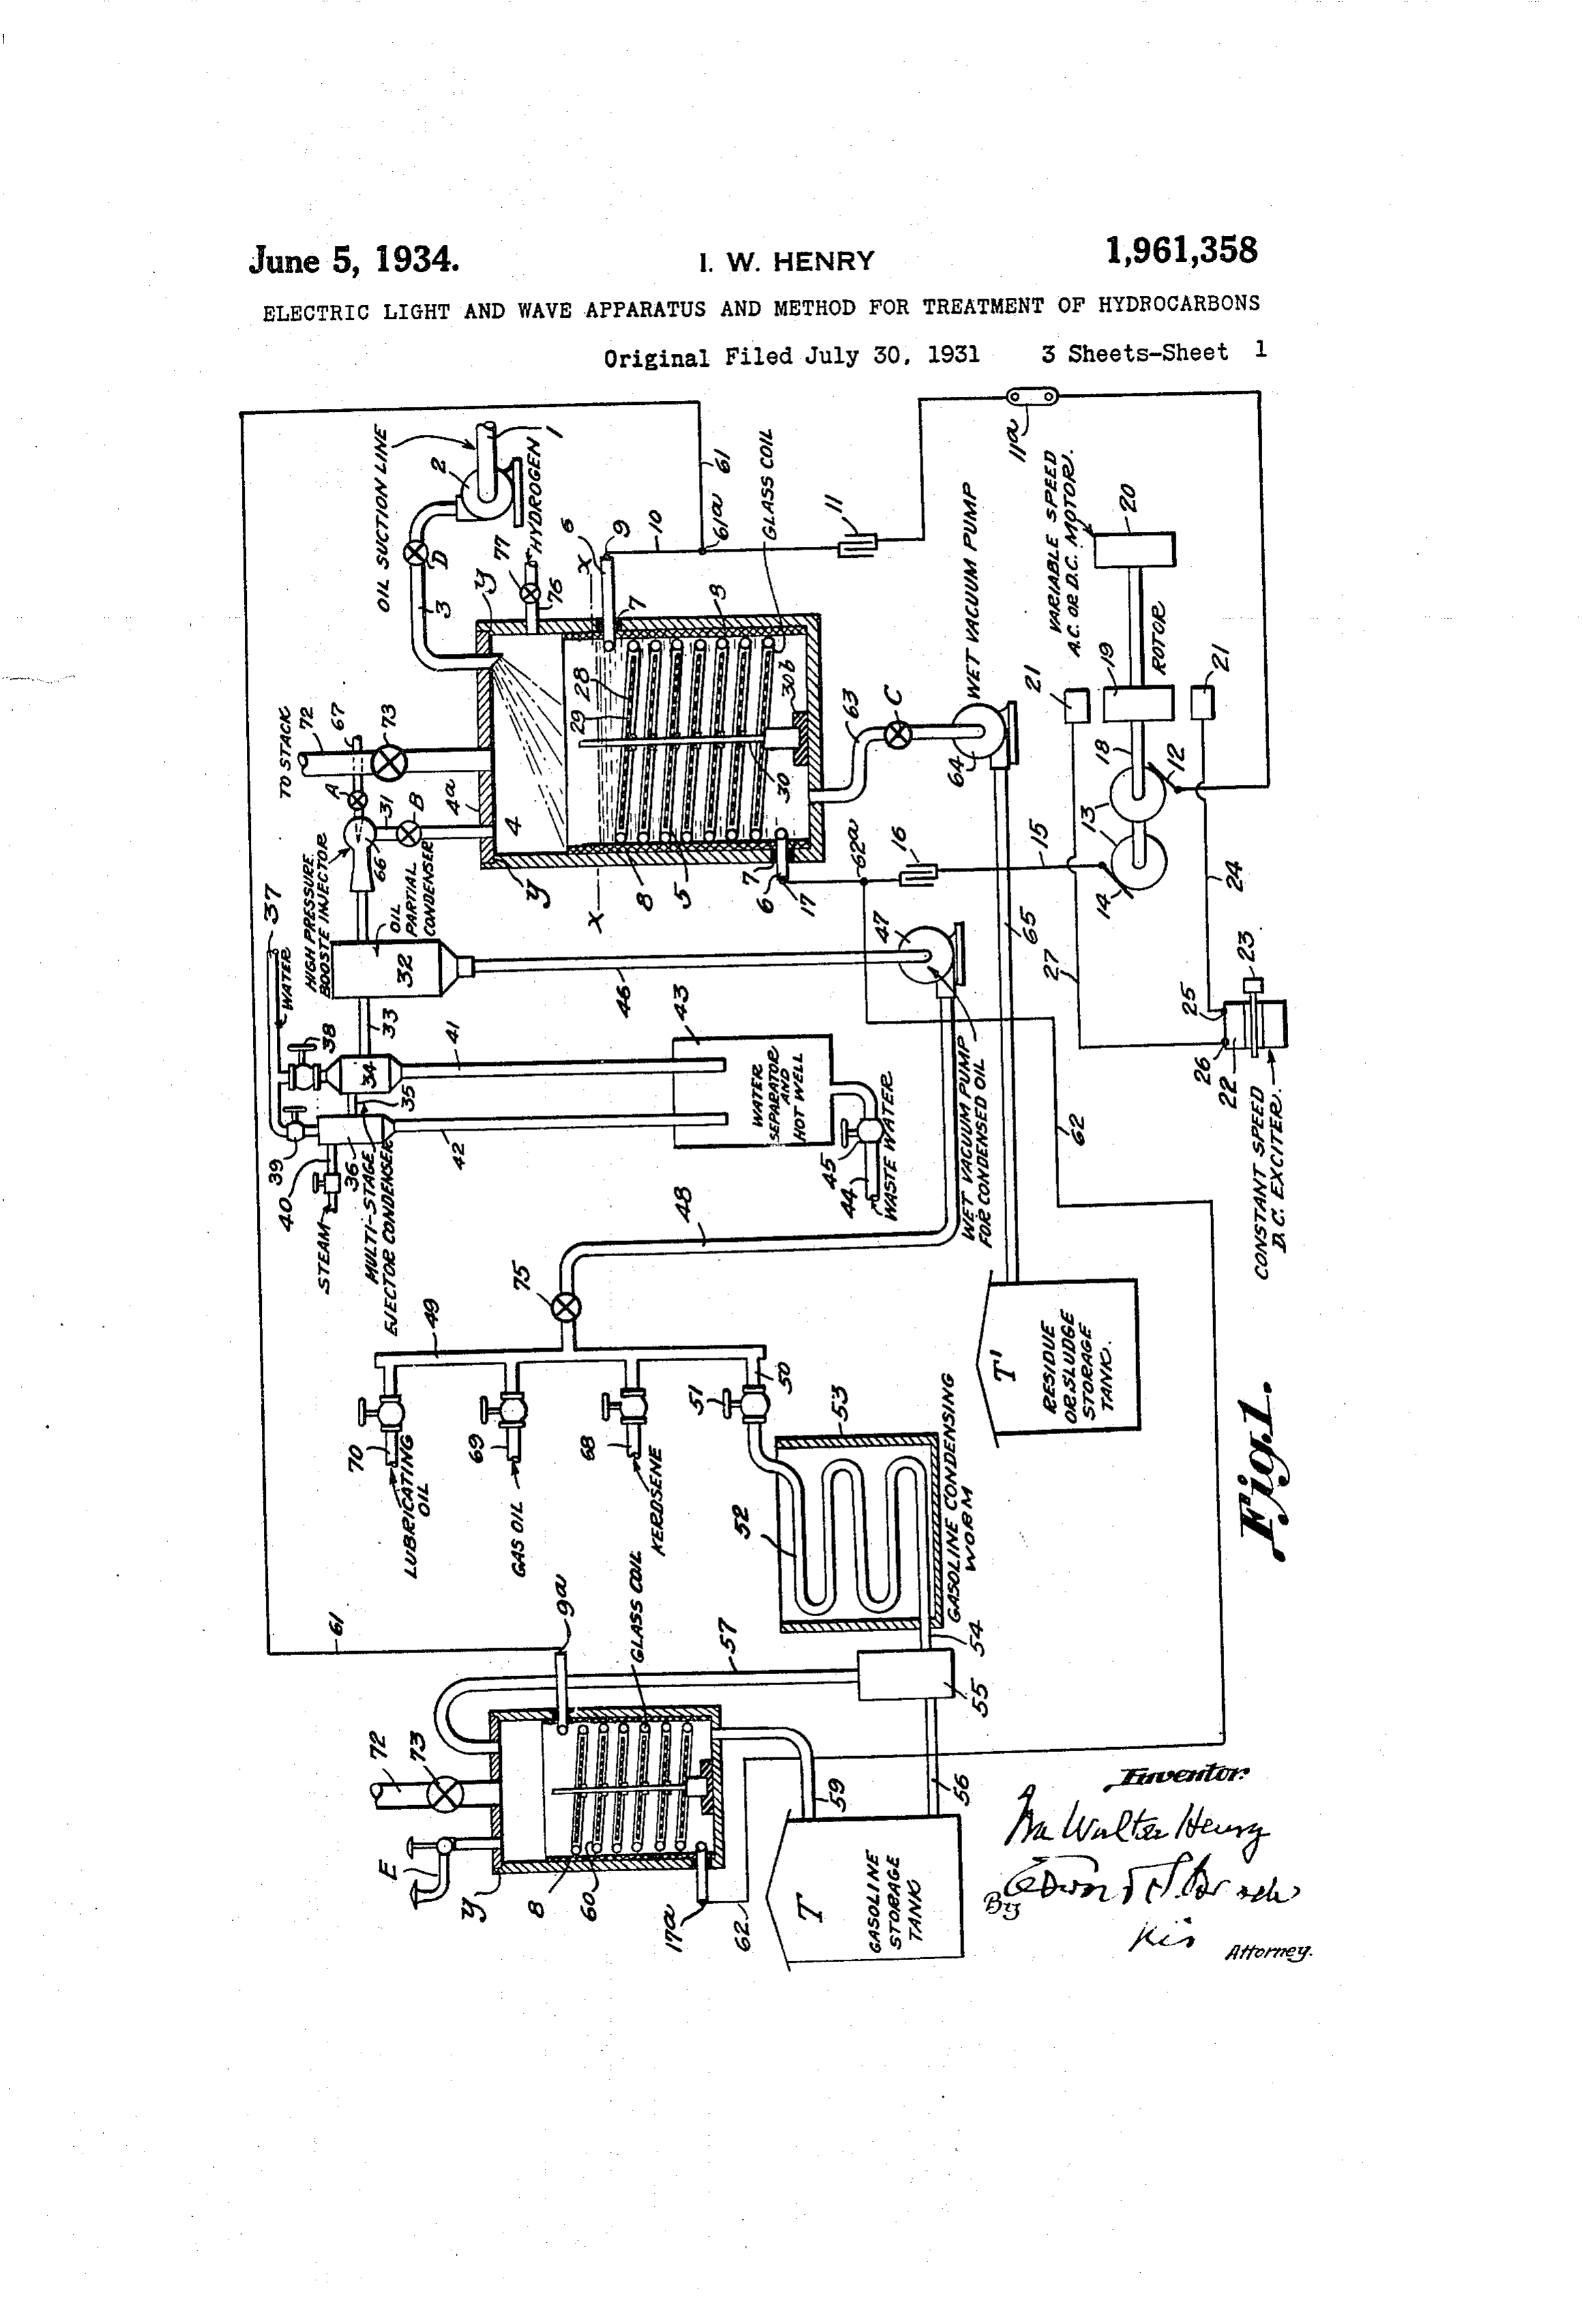 June 5, 1934.
I. W. HENRY
1,961,358
ELECTRIC LIGHT AND WAVE APPARATUS AND METHOD FOR TREATMENT OF HYDROCARBONS
Original Filed July 30, 1931
3 Sheets-Sheet 1
OIL SUCTION LINE
2
1
D
3
HYDROGEN
77
76
Y
X
6
9
10
61
61a
7
GLASS COIL
11
11a
TO STACK
72
67
73
A
31
B
4a
4
66
HIGH PRESSURE
BOOSTE INJECTOR
OIL
PARTIAL
CONDENSER
28
29
8
30
30b
5
Y
X
8
7
6
17
62a
16
15
63
C
64
WET VACUUM PUMP
VARIABLE SPEED
A.C. OR D.C. MOTOR.
20
ROTOR
19
21
21
18
12
13
14
24
27
65
37
WATER
32
33
38
34
35
36
39
40
STEAM
MULTI-STAGE
EJECTOR CONDENSER
41
42
46
43
WATER
SEPARATOR
AND
HOT WELL
47
45
44
WASTE WATER
WET VACUUM PUMP
FOR CONDENSED OIL
62
25
26
22
23
CONSTANT SPEED
D.C. EXCITER.
48
75
49
50
51
70
LUBRICATING
OIL
69
GAS OIL
68
KEROSENE
52
53
GASOLINE CONDENSING
WORM
T'
RESIDUE
OR SLUDGE
STORAGE
TANK.
61
9a
GLASS COIL
57
54
55
56
72
73
E
Y
8
60
17a
62
59
T
GASOLINE
STORAGE
TANK
Fig.1.
Inventor
Ira Walter Henry
By
his
Attorney.